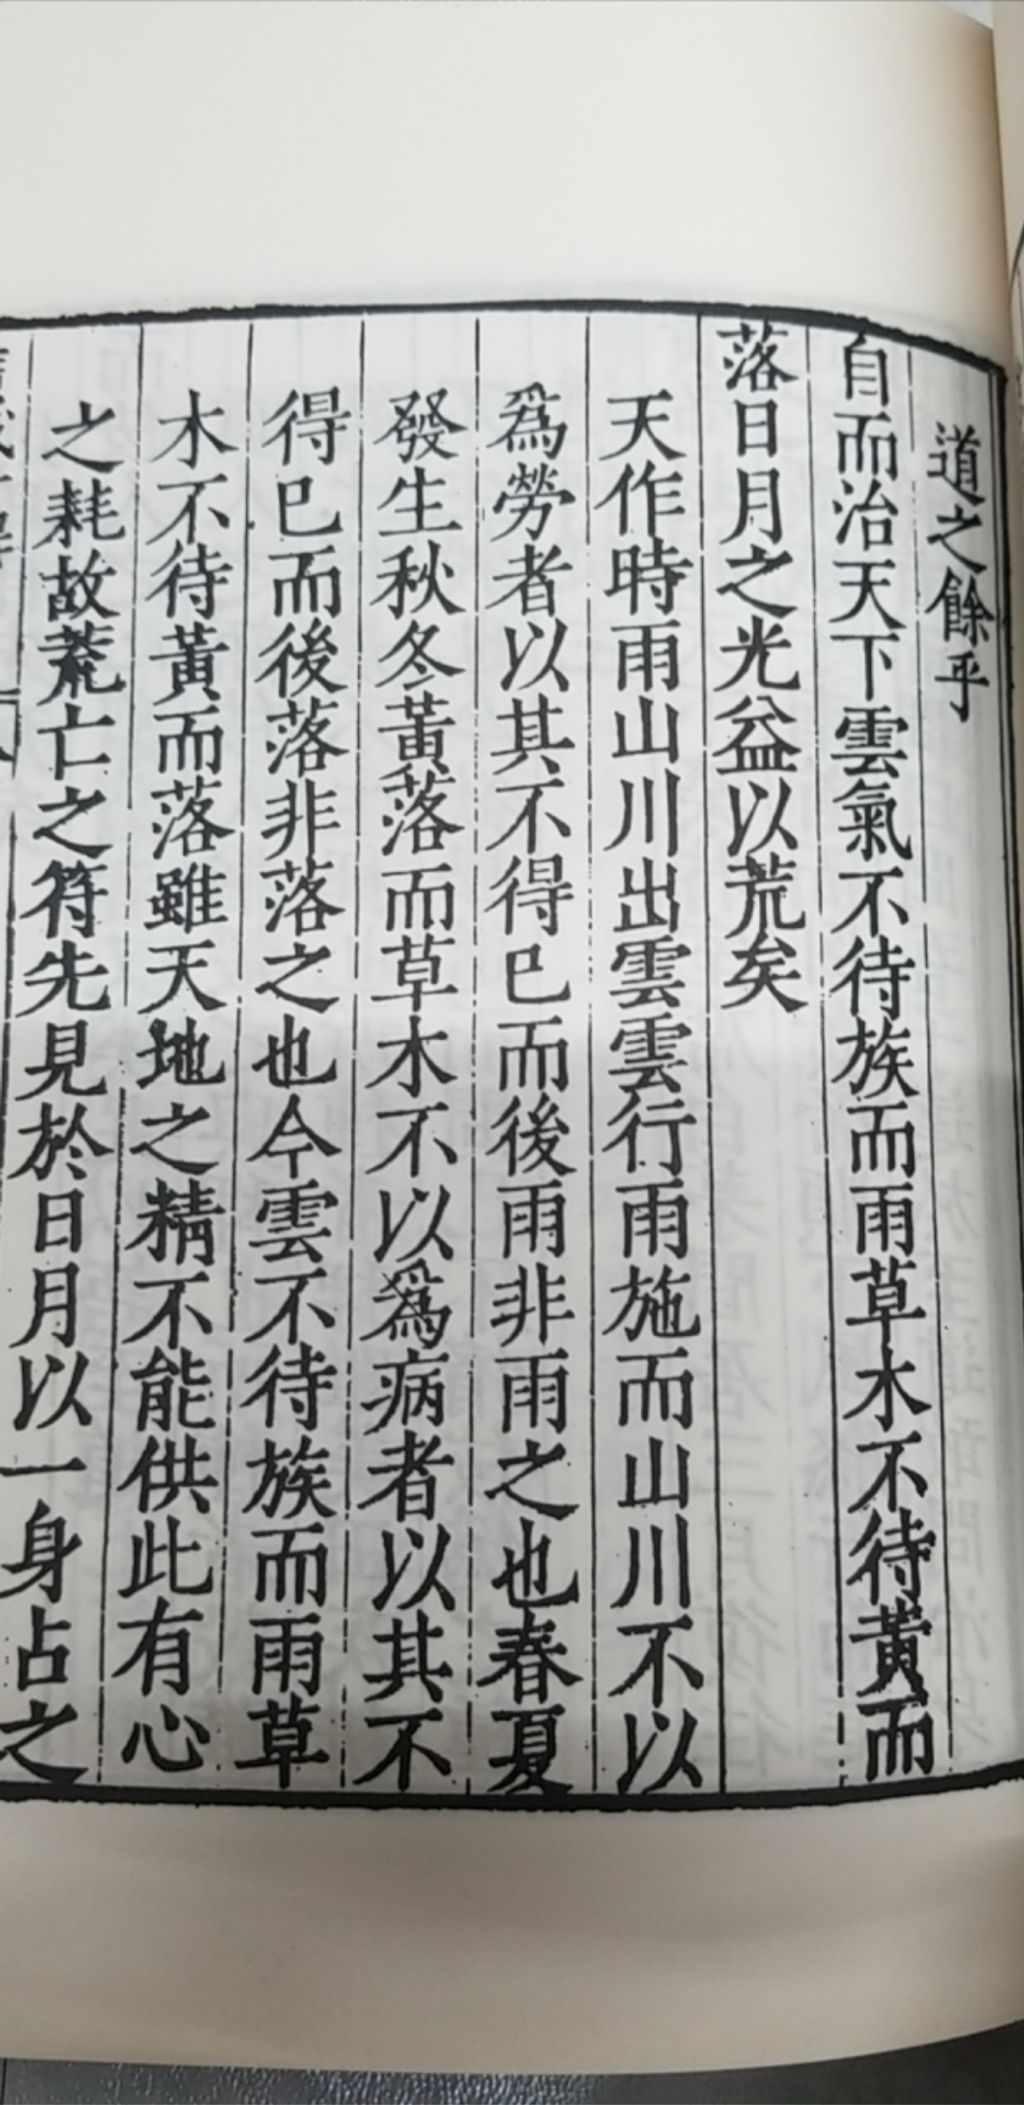 道之餘乎
自而治天下雲氣不待族而雨草木不待黃而
落日月之光益以荒矣
天作時雨山川出雲雲行雨施而山川不以
爲勞者以其不得已而後雨非雨之也春夏
發生秋冬黃落而草木不以爲病者以其不
得已而後落非落之也今雲不待族而雨草
木不待黃而落雖天地之精不能供此有心
之耗故荒亡之符先見於日月以一身占之